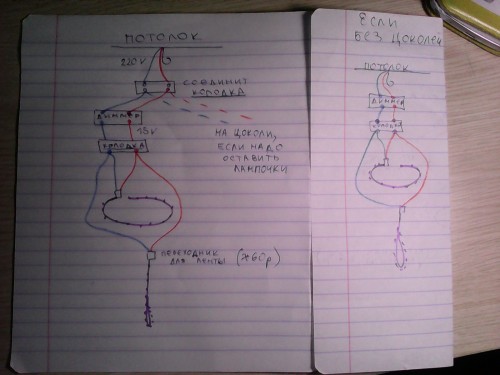 ПОТОЛОК
220V
СОЕДИНИТ
КОЛОДКА
ДИММЕР
НА ЦОКОЛИ,
ЕСЛИ НАДО
ОСТАВИТЬ
ЛАМПОЧКИ
КОЛОДКА
ПЕРЕХОДНИК
ДЛЯ ЛЕНТЫ (≈60р)
ЕСЛИ
БЕЗ ЦОКОЛЕЙ
ПОТОЛОК
ДИММЕР
КОЛОДКА